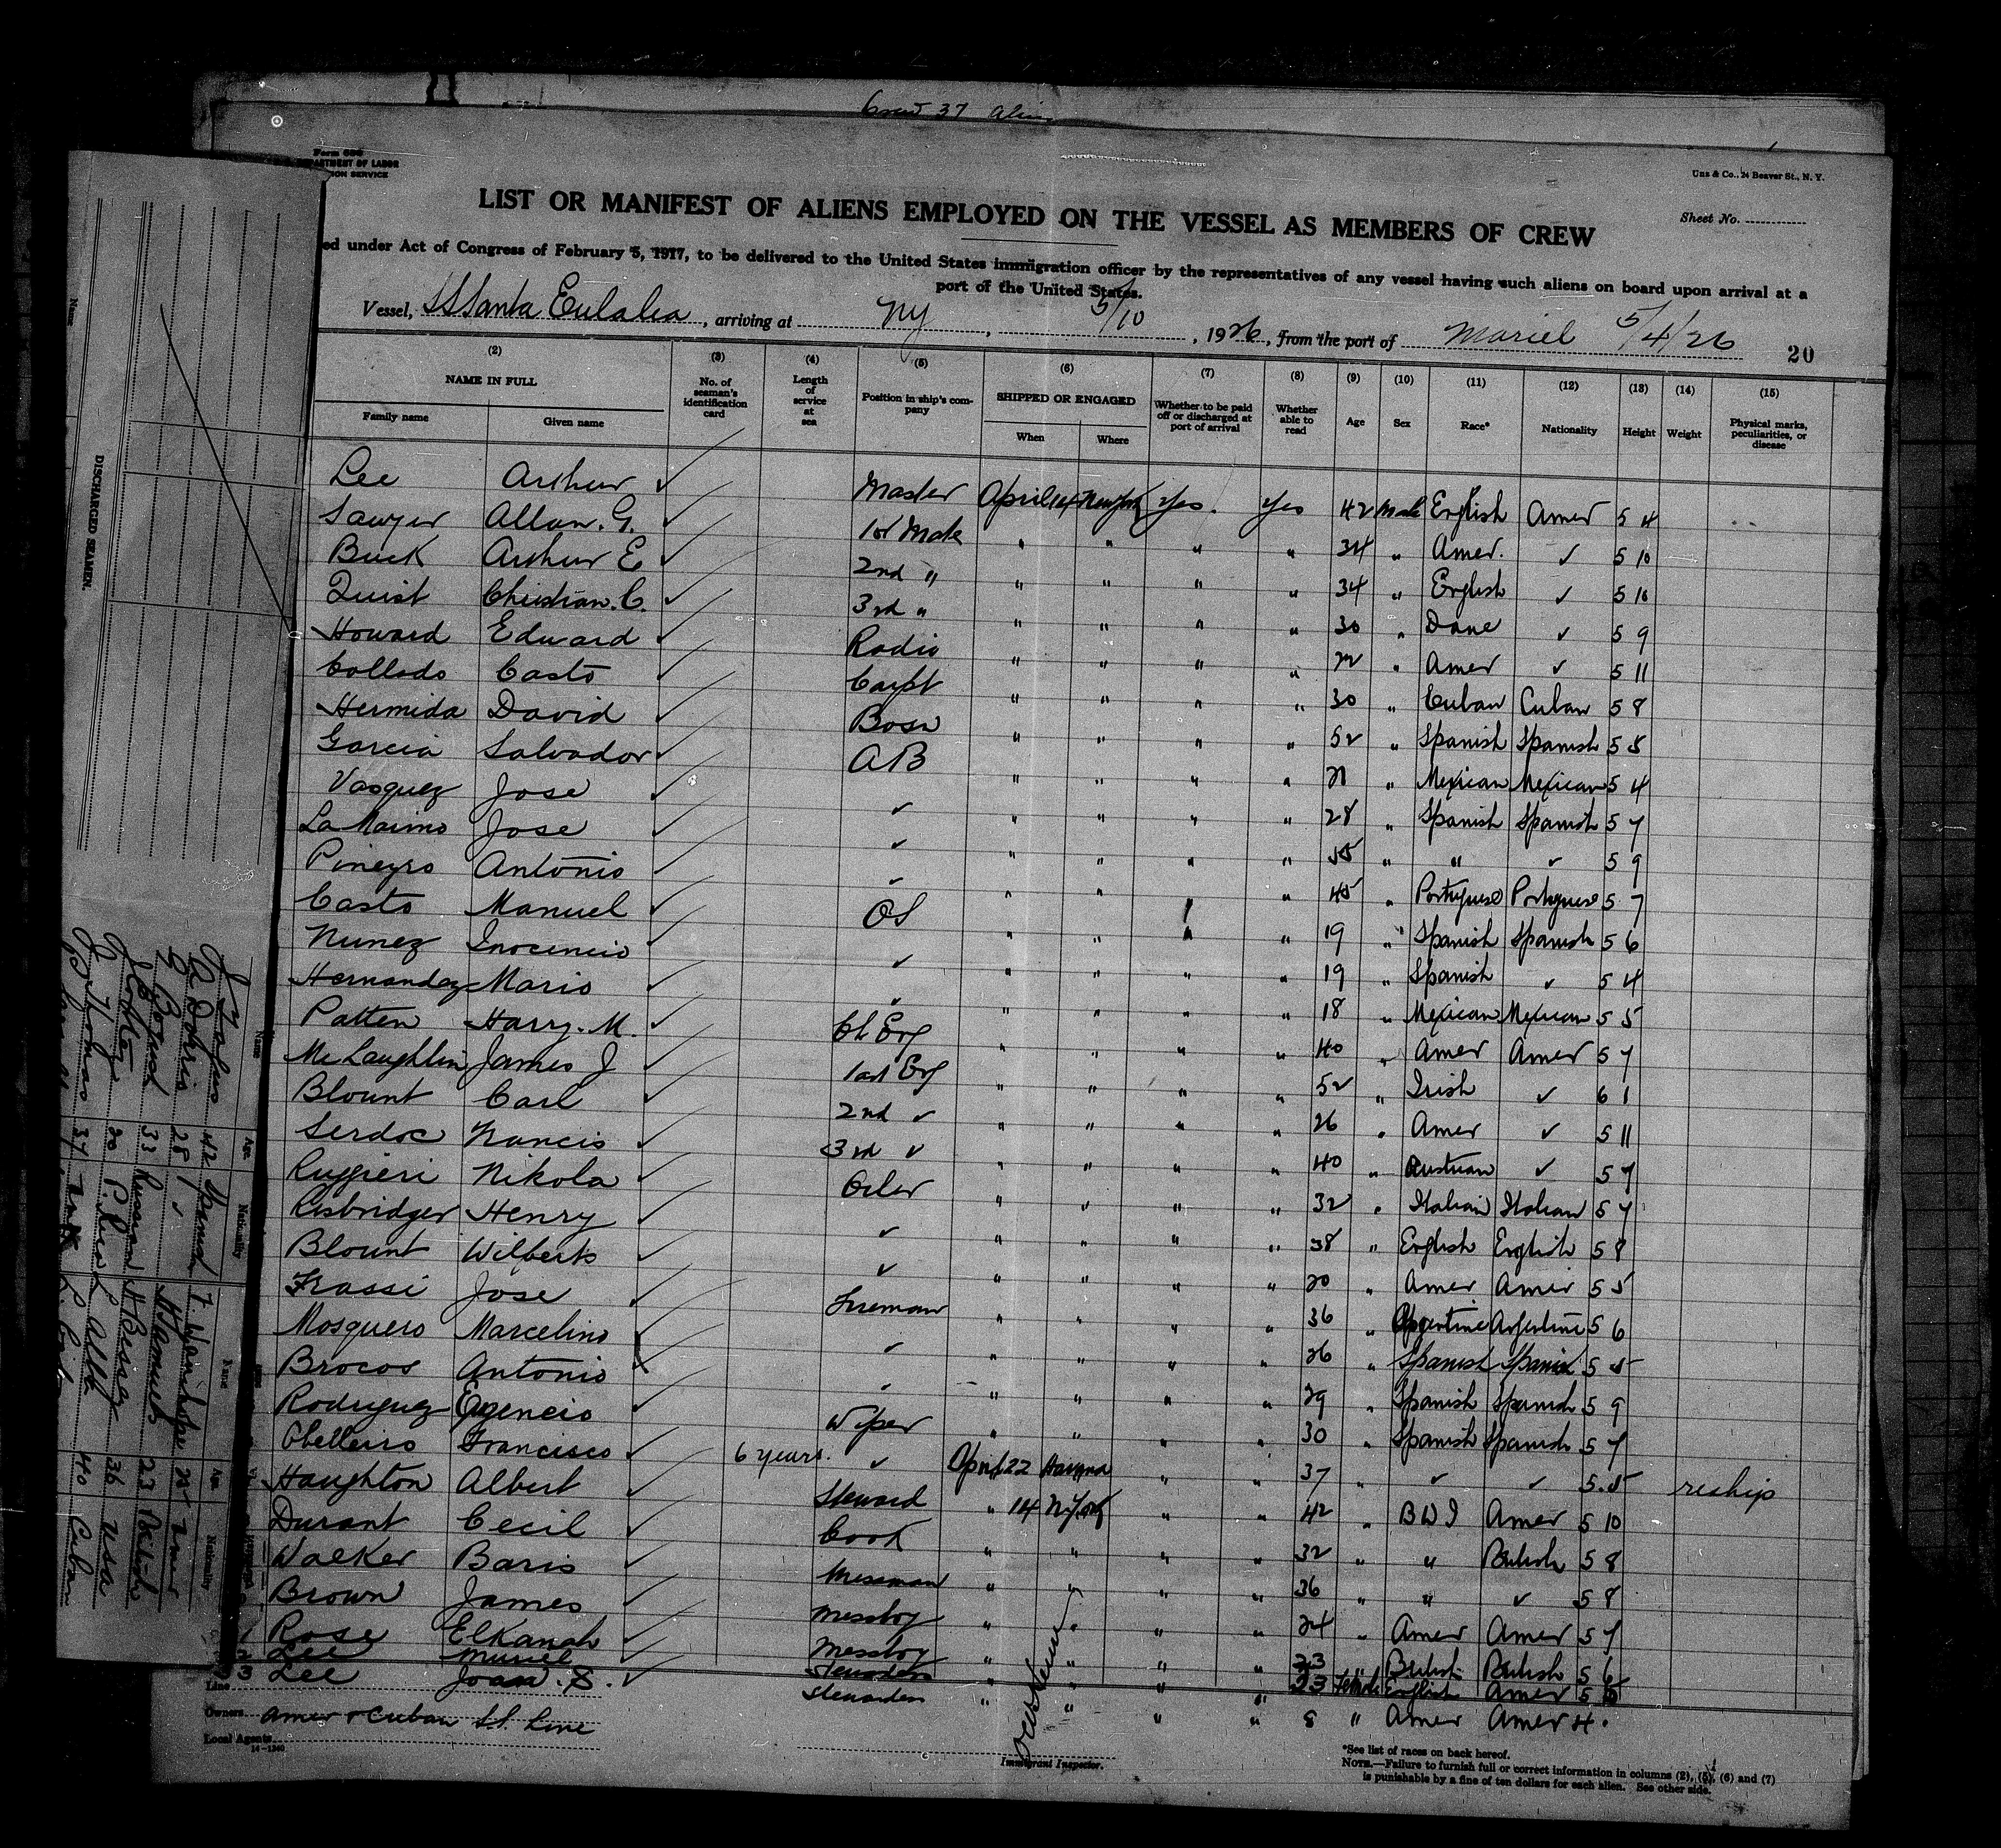 Crew 37 Alien
Form 680
DEPARTMENT OF LABOR
ION SERVICE
Uns & Co., 24 Beaver St., N. Y.
LIST OR MANIFEST OF ALIENS EMPLOYED ON THE VESSEL AS MEMBERS OF CREW
Sheet No.
ed under Act of Congress of February 5, 1917, to be delivered to the United States immigration officer by the representatives of any vessel having such aliens on board upon arrival at a
port of the United States.
Vessel, SS Santa Eulalia, arriving at NY, 5/10, 1926, from the port of Mariel 5/4/26 20
(2) (3) (4) (5) (6) (7) (8) (9) (10) (11) (12) (13) (14) (15)
NAME IN FULL No. of seaman's identification card Length of service at sea Position in ship's company SHIPPED OR ENGAGED Whether to be paid off or discharged at port of arrival Whether able to read Age Sex Race* Nationality Height Weight Physical marks, peculiarities, or disease
Family name Given name When Where
Lee Arthur ✓ Master April 14 New York Yes. Yes 42 Male English Amer 5 4
Sawyer Allan. G. ✓ 1st Mate " " " " 34 " Amer. ✓ 5 10
Buck Arthur E ✓ 2nd " " " " " 34 " English ✓ 5 10
Quist Christian. C. ✓ 3rd " " " " " 30 " Dane ✓ 5 9
Howard Edward ✓ Radio " " " " 22 " Amer ✓ 5 11
Collado Casto ✓ Carpt " " " " 30 " Cuban Cuban 5 8
Hermida David ✓ Bosn " " " " 52 " Spanish Spanish 5 5
Garcia Salvador ✓ AB " " " " 21 " Mexican Mexican 5 4
Vasquez Jose ✓ ✓ " " " " 28 " Spanish Spanish 5 7
Jose ✓ ✓ " " " " " " ✓ 5 9
Pineyro Antonio ✓ ✓ " " " " 45 " Portuguese Portuguese 5 7
Casto Manuel ✓ OS " " " " 19 " Spanish Spanish 5 6
Nunez Inocencio ✓ ✓ " " " " 19 " Spanish ✓ 5 4
Hernandez Mario ✓ ✓ " " " " 18 " Mexican Mexican 5 5
Patten Harry. M. ✓ Ch Eng " " " " 40 " Amer Amer 5 7
McLaughlin James J ✓ 1st Eng " " " " 52 " Irish ✓ 6 1
Blount Carl ✓ 2nd ✓ " " " " 26 " Amer ✓ 5 11
Serdoc Nancis ✓ 3rd ✓ " " " " 40 " Austrian ✓ 5 7
Ruggieri Nikola ✓ Oiler " " " " 32 " Italian Italian 5 7
Henry ✓ ✓ " " " " 38 " English English 5 8
Blount Wilberts ✓ ✓ " " " " 20 " Amer Amer 5 5
Frassi Jose ✓ Fireman " " " " 36 " Argentine Argentine 5 6
Mosquero Marcelino ✓ ✓ " " " " 26 " Spanish Spanish 5 5
Brocos Antonio ✓ ✓ " " " " 29 " Spanish Spanish 5 9
Rodriguez ✓ Wiper " " " " 30 " Spanish Spanish 5 7
Obelleiro Francisco ✓ 6 years. ✓ April 22 Havana " " 37 " ✓ ✓ 5.5 reship
Haughton Albert ✓ Steward " 14 N York " " 42 " B W I Amer 5 10
Durant Cecil ✓ Cook " " " " 32 " " British 5 8
Walker Baris ✓ Messman " " " " 36 " " ✓ 5 8
Brown James ✓ Messboy " " " " 24 " Amer Amer 5 7
Rose Elkanah ✓ Messboy " " " " 23 " British British 5 6
Lee Muriel ✓ Stewardess " " " " 23 Female English Amer 5
Lee Joan. S. ✓ Stewardess " " " " 8 " Amer Amer 4.
Line
Owners Amer & Cuban SS. Line
Local Agents
14-1240
Immigrant Inspector.
*See list of races on back hereof.
NOTE.—Failure to furnish full or correct information in columns (2), (5), (6) and (7)
is punishable by a fine of ten dollars for each alien. See other side.
DISCHARGED SEAMEN.
Name
Name Age Nationality Name Age Nationality
42 Spanish
28 ✓
33 Russian 23 British
20 P. Rico 36 USA
Thomas 37 40 Cuban